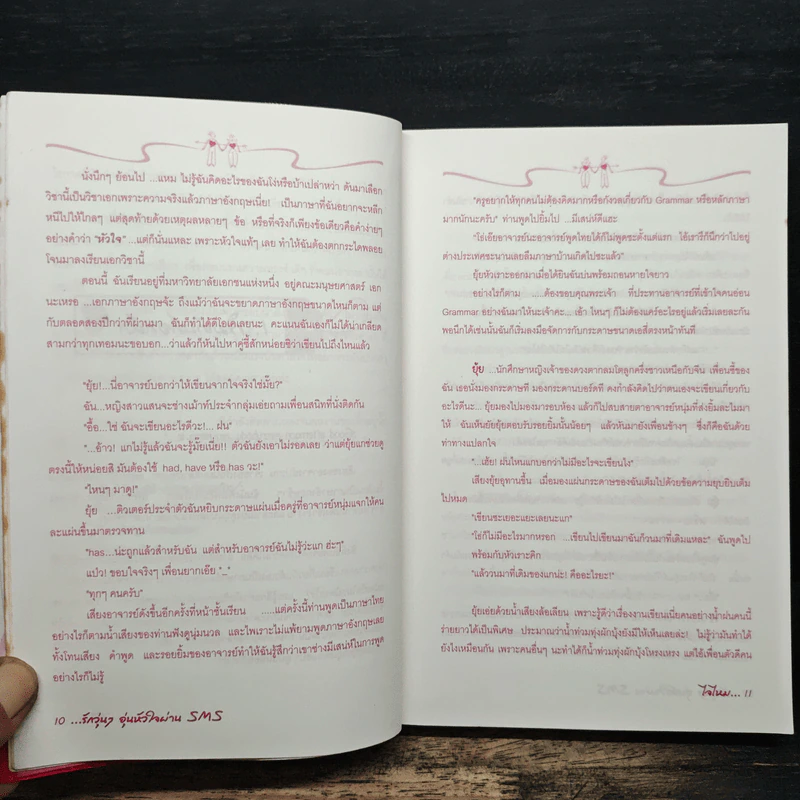 นั่งนึกๆ ย้อนไป ...แหม ไม่รู้ฉันคิดอะไรของฉันโง่หรือบ้าเปล่าหว่า ดันมาเลือก
วิชานี้เป็นวิชาเอกเพราะความจริงแล้วภาษาอังกฤษเนี่ย! เป็นภาษาที่ฉันอยากจะหลีก
หนีไปให้ไกลๆ แต่สุดท้ายด้วยเหตุผลหลายๆ ข้อ หรือที่จริงก็เพียงข้อเดียวคือคำง่ายๆ
อย่างคำว่า "หัวใจ" ...แต่ก็นั่นแหละ เพราะหัวใจแท้ๆ เลย ทำให้ฉันต้องตกกระไดพลอย
โจนมาลงเรียนเอกวิชานี้
ตอนนี้ ฉันเรียนอยู่ที่มหาวิทยาลัยเอกชนแห่งหนึ่ง อยู่คณะมนุษยศาสตร์ เอก
นะเหรอ ...เอกภาษาอังกฤษจ้ะ ถึงแม้ว่าฉันจะขยาดภาษาอังกฤษขนาดไหนก็ตาม แต่
กับตลอดสองปีกว่าที่ผ่านมา ฉันก็ทำได้ดีโอเคเลยนะ คะแนนฉันเองก็ไม่ได้น่าเกลียด
สามกว่าทุกเทอมนะขอบอก...ว่าแล้วก็หันไปหาคู่ซี้สักหน่อยซิว่าเขียนไปถึงไหนแล้ว
"ยุ้ย! ...นี่อาจารย์บอกว่าให้เขียนจากใจจริงใช่มั๊ย?"
ฉัน...หญิงสาวแสนจะช่างเม้าท์ประจำกลุ่มเอ่ยถามเพื่อนสนิทที่นั่งติดกัน
"อื้อ...ใช่ ฉันจะเขียนอะไรดีวะ!... ฝน"
"...อ้าว! แกไม่รู้แล้วฉันจะรู้มั๊ยเนี่ย!! ตัวฉันยังเอาไม่รอดเลย ว่าแต่ยุ้ยแกช่วยดู
ตรงนี้ให้หน่อยสิ มันต้องใช้ had, have หรือ has วะ!"
"ไหนๆ มาดู!"
ยุ้ย ...ติวเตอร์ประจำตัวฉันหยิบกระดาษแผ่นเมื่อครู่ที่อาจารย์หนุ่มแจกให้คน
ละแผ่นขึ้นมาตรวจทาน
"has...น่ะถูกแล้วสำหรับฉัน แต่สำหรับอาจารย์ฉันไม่รู้ว่ะแก ฮ่ะๆ"
แป่ว! ขอบใจจริงๆ เพื่อนยากเอ๊ย "_"
"ทุกๆ คนครับ"
เสียงอาจารย์ดังขึ้นอีกครั้งที่หน้าชั้นเรียน .....แต่ครั้งนี้ท่านพูดเป็นภาษาไทย
อย่างไรก็ตามน้ำเสียงของท่านฟังดูนุ่มนวล และไพเราะไม่แพ้ยามพูดภาษาอังกฤษเลย
ทั้งโทนเสียง คำพูด และรอยยิ้มของอาจารย์ทำให้ฉันรู้สึกว่าเขาช่างมีเสน่ห์ในการพูด
อย่างไรก็ไม่รู้
10 ...รักวุ่นๆ อุ่นหัวใจผ่าน SMS
"ครูอยากให้ทุกคนไม่ต้องคิดมากหรือกังวลเกี่ยวกับ Grammar หรือหลักภาษา
มากนักนะครับ" ท่านพูดไปยิ้มไป ...มีเสน่ห์ดีแฮะ
"โธ่เอ๊ยอาจารย์นะอาจารย์พูดไทยได้ก็ไม่พูดซะตั้งแต่แรก ไอ้เรารึก็นึกว่าไปอยู่
ต่างประเทศซะนานเลยลืมภาษาบ้านเกิดไปซะแล้ว"
ยุ้ยหัวเราะออกมาเมื่อได้ยินฉันบ่นพร้อมถอนหายใจยาว
อย่างไรก็ตาม ....ต้องขอบคุณพระเจ้า ที่ประทานอาจารย์ที่เข้าใจคนอ่อน
Grammar อย่างฉันมาให้นะเจ้าคะ... เอ้า ไหนๆ ก็ไม่ต้องแคร์อะไรอยู่แล้วเริ่มเลยละกัน
พอนึกได้เช่นนั้นฉันก็เริ่งลงมือจัดการกับกระดาษขนาดเอสี่ตรงหน้าทันที
ยุ้ย ...นักศึกษาหญิงเจ้าของดวงตากลมโตลูกครึ่งชาวเหนือกับจีน เพื่อนซี้ของ
ฉัน เธอนั่งมองกระดาษที มองกระดานบอร์ดที คงกำลังคิดไปว่าตนเองจะเขียนเกี่ยวกับ
อะไรดีนะ... ยุ้ยมองไปมองมารอบห้อง แล้วก็ไปสบสายตาอาจารย์หนุ่มที่ส่งยิ้มละไมมา
ให้ ฉันเห็นยัยยุ้ยตอบรับรอยยิ้มนั้นน้อยๆ แล้วหันมายังเพื่อนข้างๆ ซึ่งก็คือฉันด้วย
ท่าทางแปลกใจ
"...เฮ้ย! ฝนไหนแกบอกว่าไม่มีอะไรจะเขียนไง"
เสียงยุ้ยอุทานขึ้น เมื่อมองแผ่นกระดาษของฉันเต็มไปด้วยข้อความยุบยิบเต็ม
ไปหมด
"เขียนซะเยอะแยะเลยนะแก"
"โธ่ก็ไม่มีอะไรมากหรอก ...เขียนไปเขียนมาฉันก็วนมาที่เดิมแหละ" ฉันพูดไป
พร้อมกับหัวเราะคิก
"แล้ววนมาที่เดิมของแกน่ะ! คืออะไรยะ!"
ยุ้ยเอ่ยด้วยน้ำเสียงล้อเลียน เพราะรู้ดีว่าเรื่องงานเขียนเนี่ยคนอย่างน้ำฝนคนนี้
ร่ายยาวได้เป็นพิเศษ ประมาณว่าน้ำท่วมทุ่งผักบุ้งยังมีให้เห็นเลยล่ะ! ไม่รู้ว่ามันทำได้
ยังไงเหมือนกัน เพราะคนอื่นๆ นะทำได้ก็น้ำท่วมทุ่งผักบุ้งโหรงเหรง แต่ไอ้เพื่อนตัวดีคน
ใช่ไหม... 11